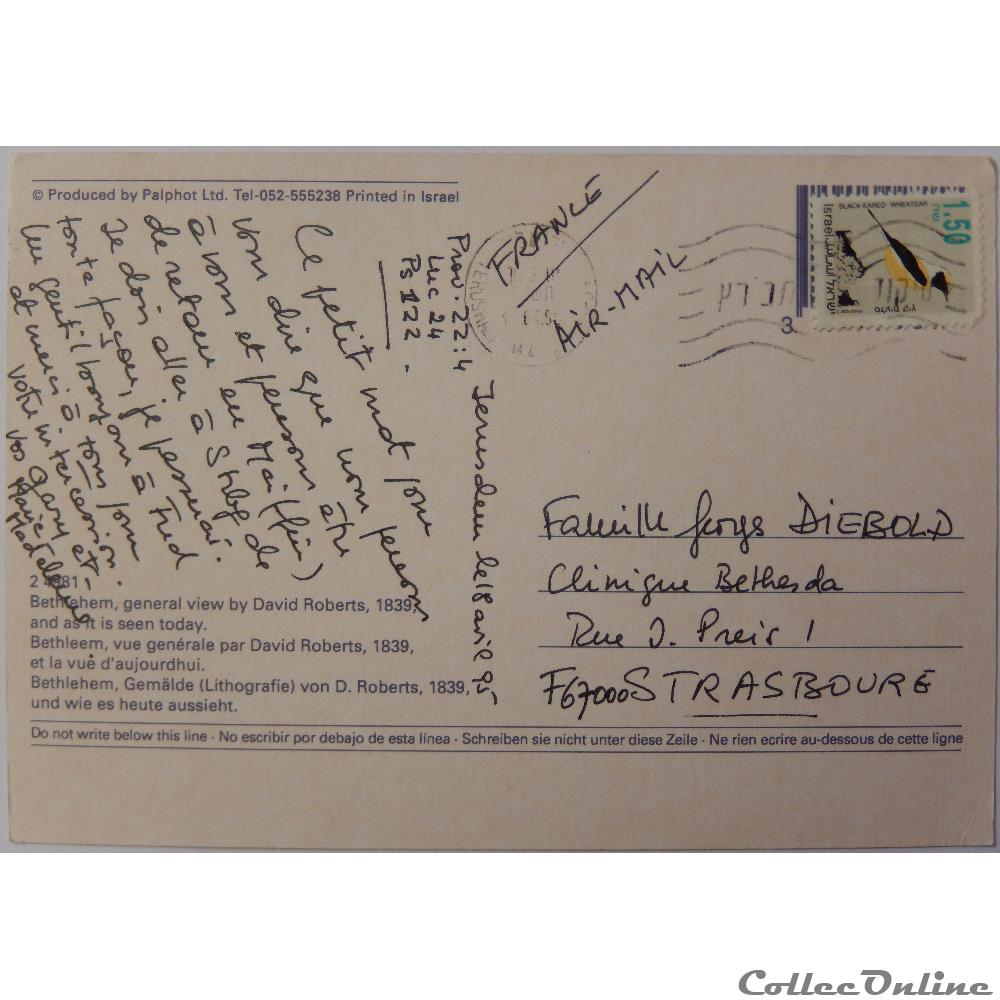 © Produced by Palphot Ltd. Tel-052-555238 Printed in Israel
Prov. 22:4
Luc 24
Ps 122
FRANCE
AiR-MAiL
BLACK-EARED WHEATEAR
1.50
Israel
ישראל
3
Jerusalem le 18 avril 95
Ce petit mot pour
vous dire que nous pensons
à vous et pensons être
de retour en Mai (fin)
Je dois aller à Stbg de
toute façon, je passerai.
Un gentil bonjour à Fred
et merci à tous pour
votre intercession.
vos Gary et
Marie Madeleine
Famille Georges DiEBOLD
Clinique Bethesda
Rue J. Preis 1
F67000 STRASBOURG
2 4981
Bethlehem, general view by David Roberts, 1839,
and as it is seen today.
Bethleem, vue genérale par David Roberts, 1839,
et la vue d'aujourdhui.
Bethlehem, Gemälde (Lithografie) von D. Roberts, 1839,
und wie es heute aussieht.
Do not write below this line · No escribir por debajo de esta línea · Schreiben sie nicht unter diese Zeile · Ne rien ecrire au-dessous de cette ligne
CollecOnline